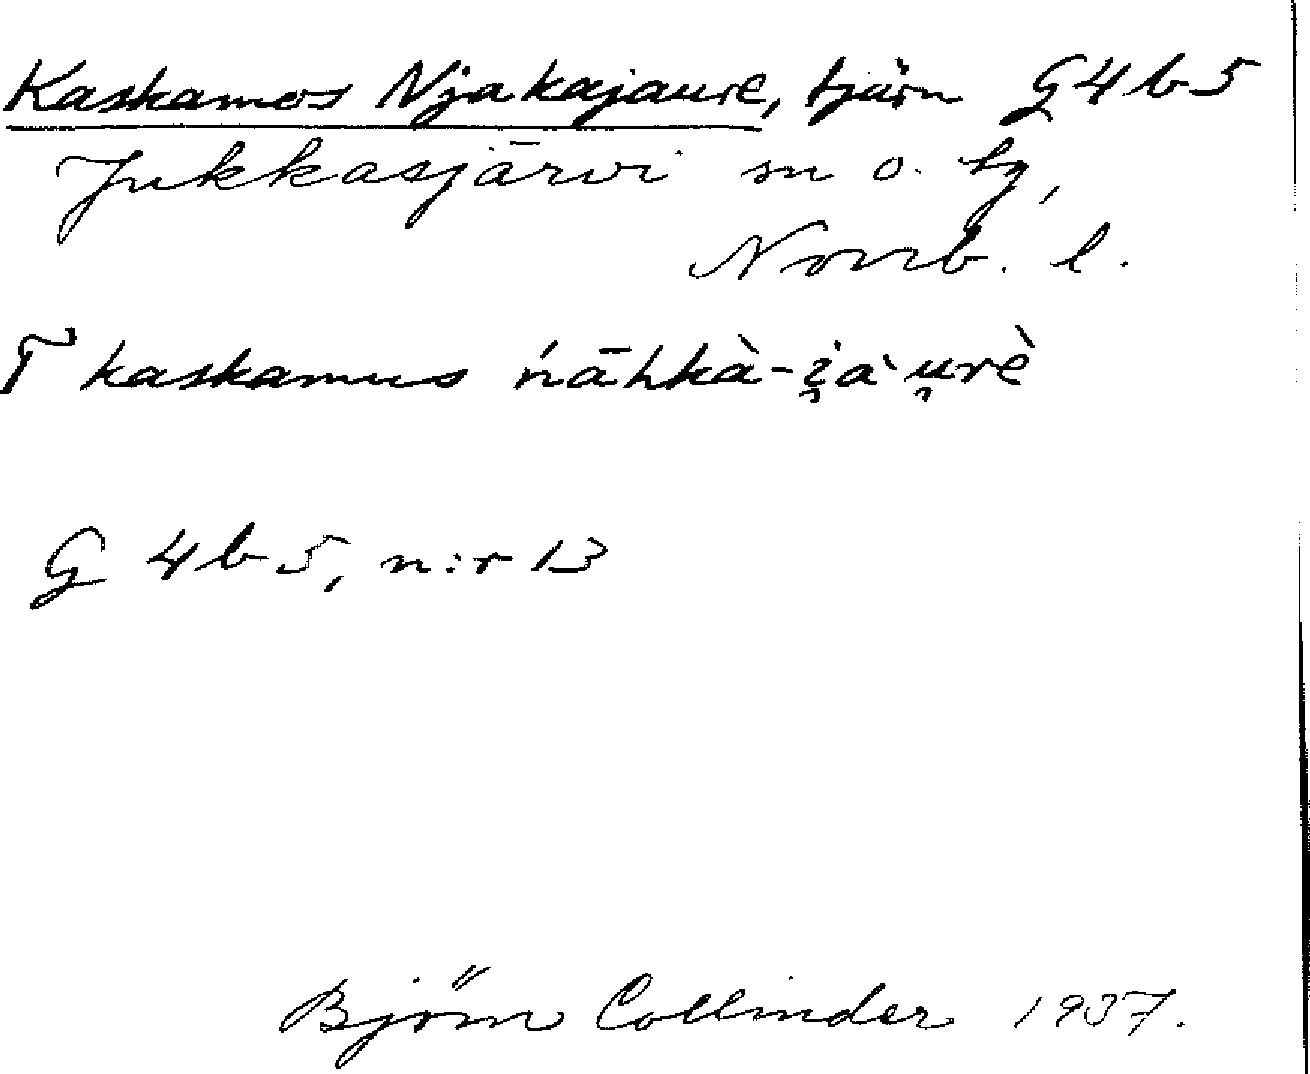 Kaskamos Njakajaure, tjärn G4b5
Jukkasjärvi sn o. tg,
Norrb. l.
T kaskamus ńāhkà-i̯àu̯rè
G 4b5, n:r 13
Björn Collinder 1937.